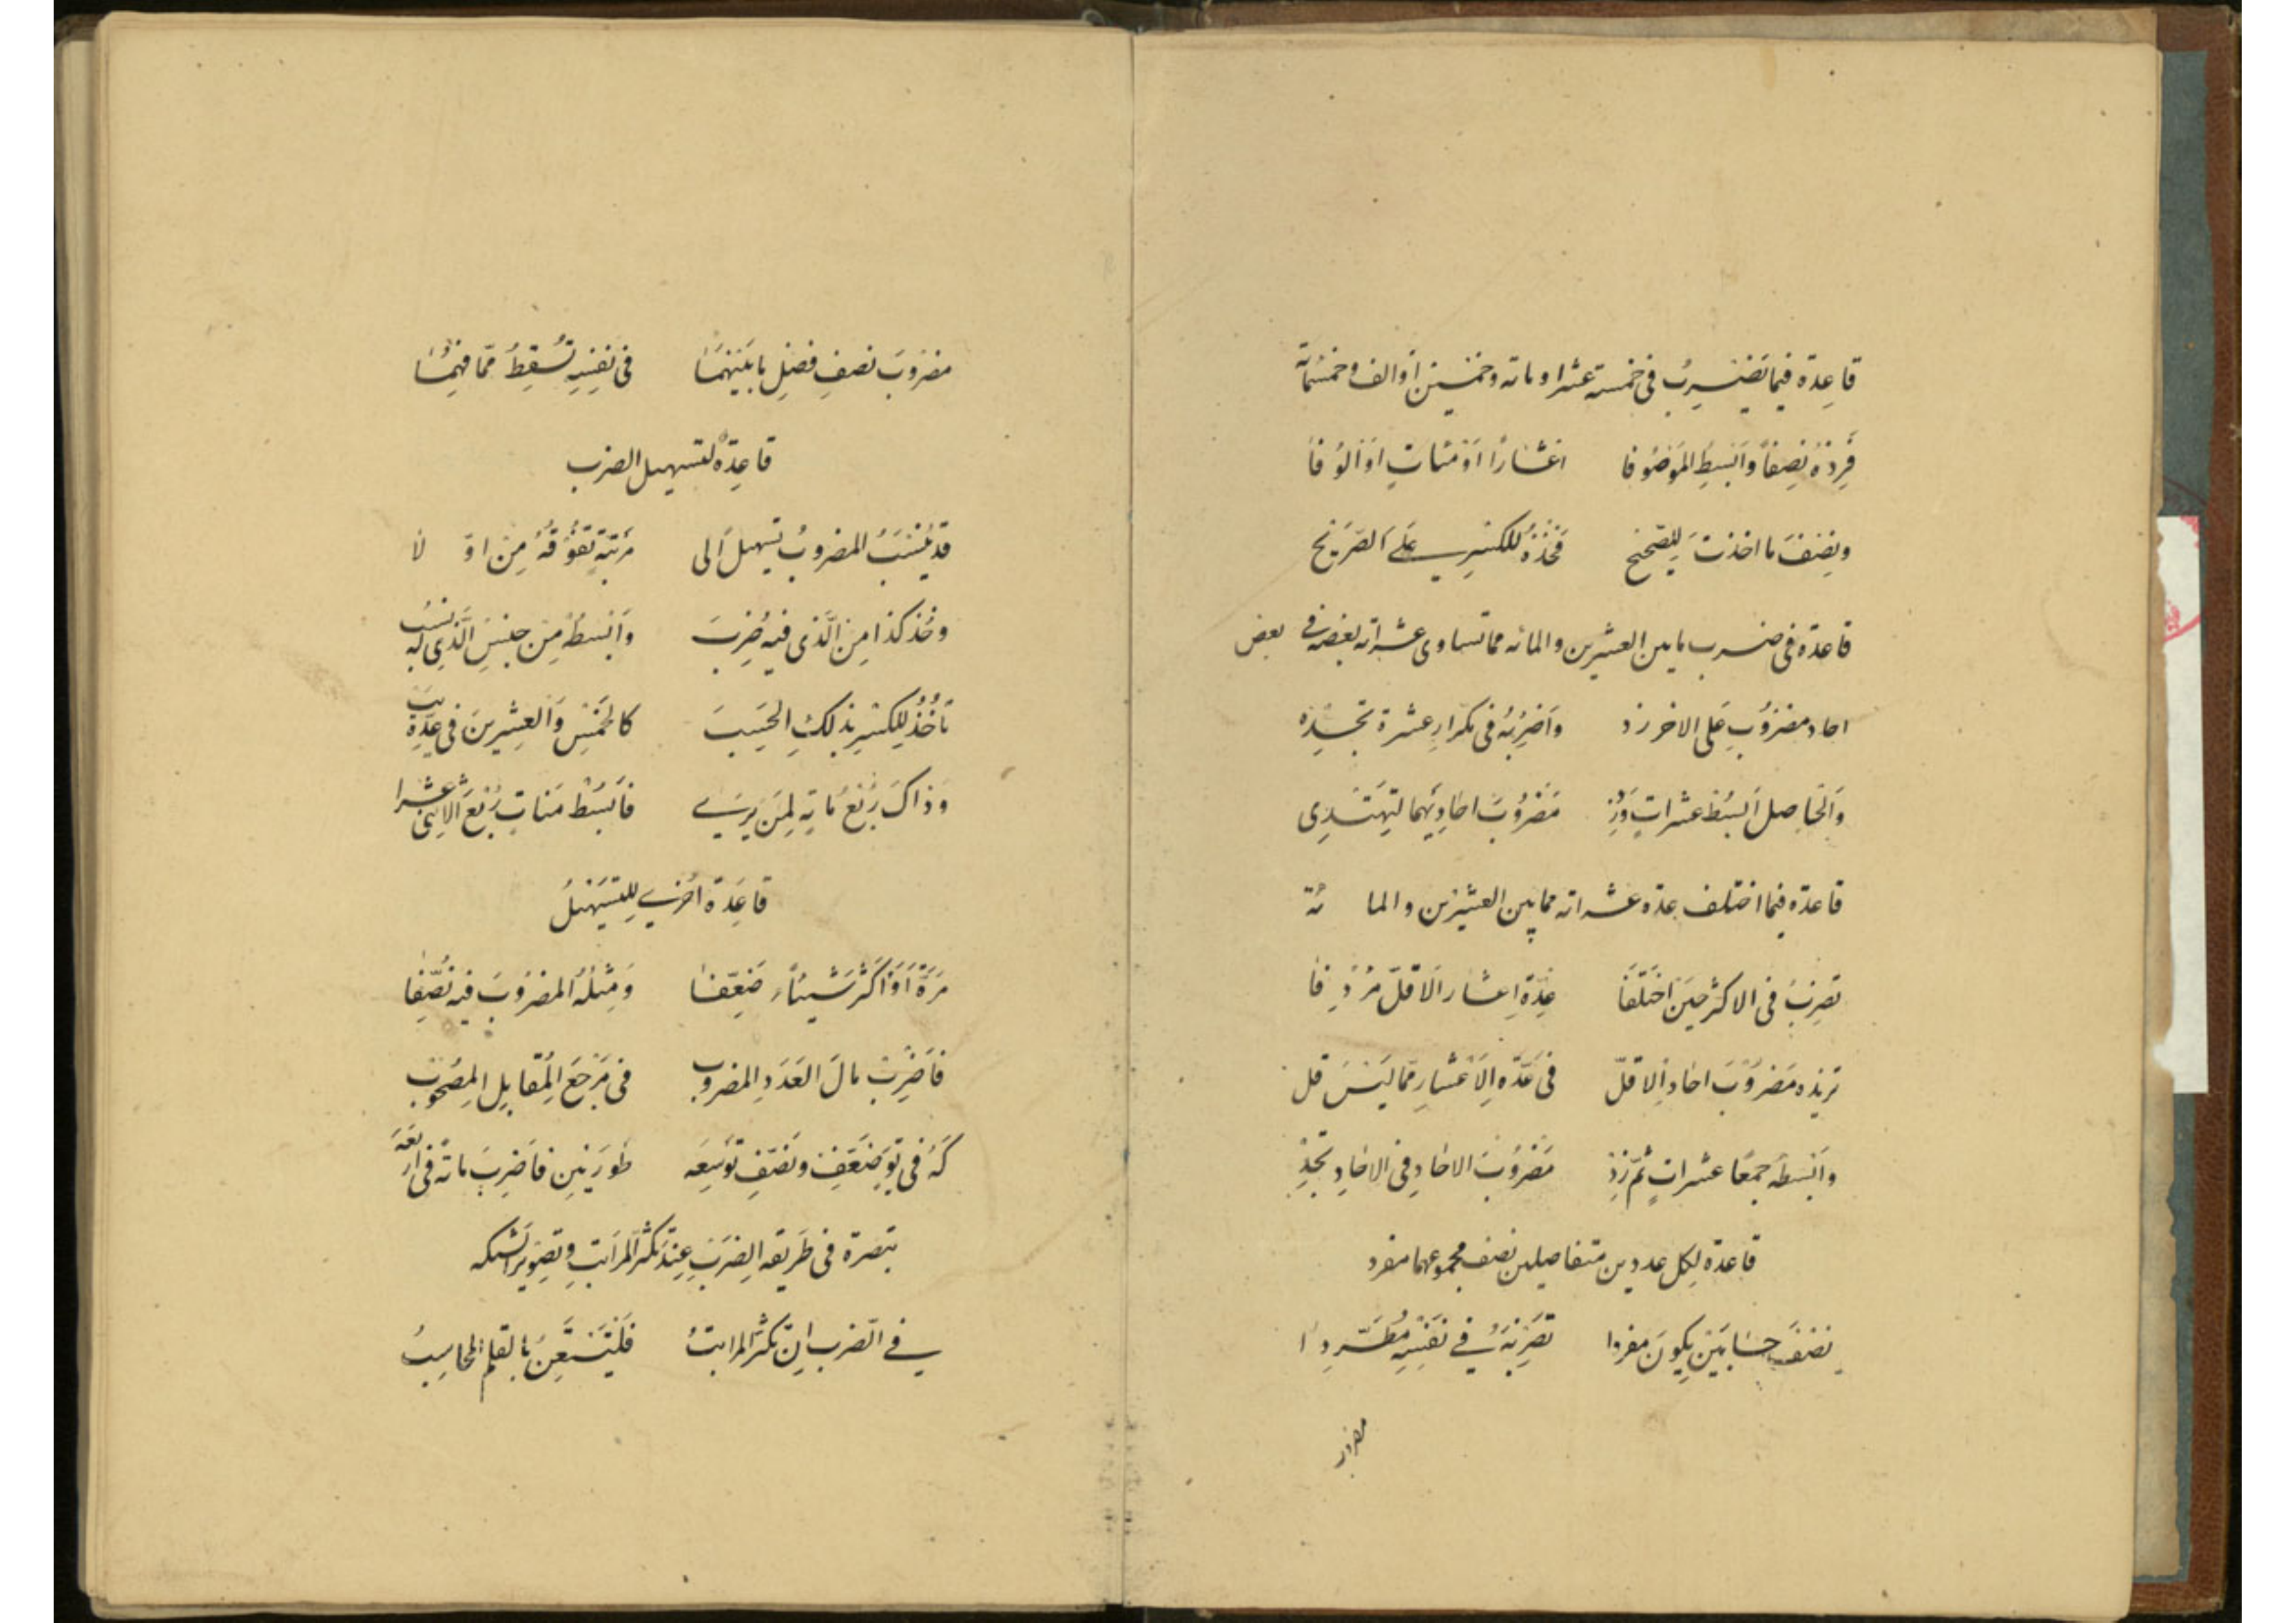 قاعدة فيما يضرب في خمسة عشر او مائة وخمسين أو الف وخمسمائة
فزده نصفاً وابسط الموصوفا اعشاراً أو مئات او الوفا
ونصف ما اخذت للصحيح فخذه للكسر على الصريح
قاعدة في ضرب ما بين العشرين والمائه مما تساوى عشراته بعضه في بعض
احاد مضروب على الاخر زد واضربه في تكرار عشرة تجده
والحاصل ابسط عشرات وزد مضروب احاديهما لتهتدى
قاعدة فيما اختلف عدة عشراته مما بين العشرين والمائة
تضرب في الاكثر حين اختلفا عدة اعشار الاقل مردفا
تزيده مضروب احاد الاقل في عدة الاعشار مما ليس قل
وابسطه جمعا عشرات ثم زد مضروب الاحاد في الاحاد تجد
قاعدة لكل عددين متفاصلين نصف مجموعهما مفرد
نصف حسابين يكون مفردا تضربه في نفسه مطردا
مضروب
مضروب نصف فضل ما بينهما في نفسه تسقط مما فهما
قاعدة لتسهيل الضرب
قد ينسب المضروب تسهيلا الى مرتبة تفوقه من اولا
وخذ كذا من الذى فيه ضرب وابسط من جنس الذي له نسب
تأخذ للكسر بذلك الحسب كالخمس والعشرين في عدة
وذاك ربع مائة لمن يرى فابسط مئات ربع الاثنى عشرا
قاعدة اخرى للتسهيل
مرة أو اكثر شيئاً ضعفا ومثله المضروب فيه نصفا
فاضرب مال العدد المضروب في مرجع المقابل المصحوب
كه في يو ضعف ونصف توسعه طورين فاضرب مائة في اربعة
تبصرة في طريقه الضرب عند تكثر المراتب وتصوير الشبكه
في الضرب ان تكثر المراتب فليستعن بالقلم المحاسب